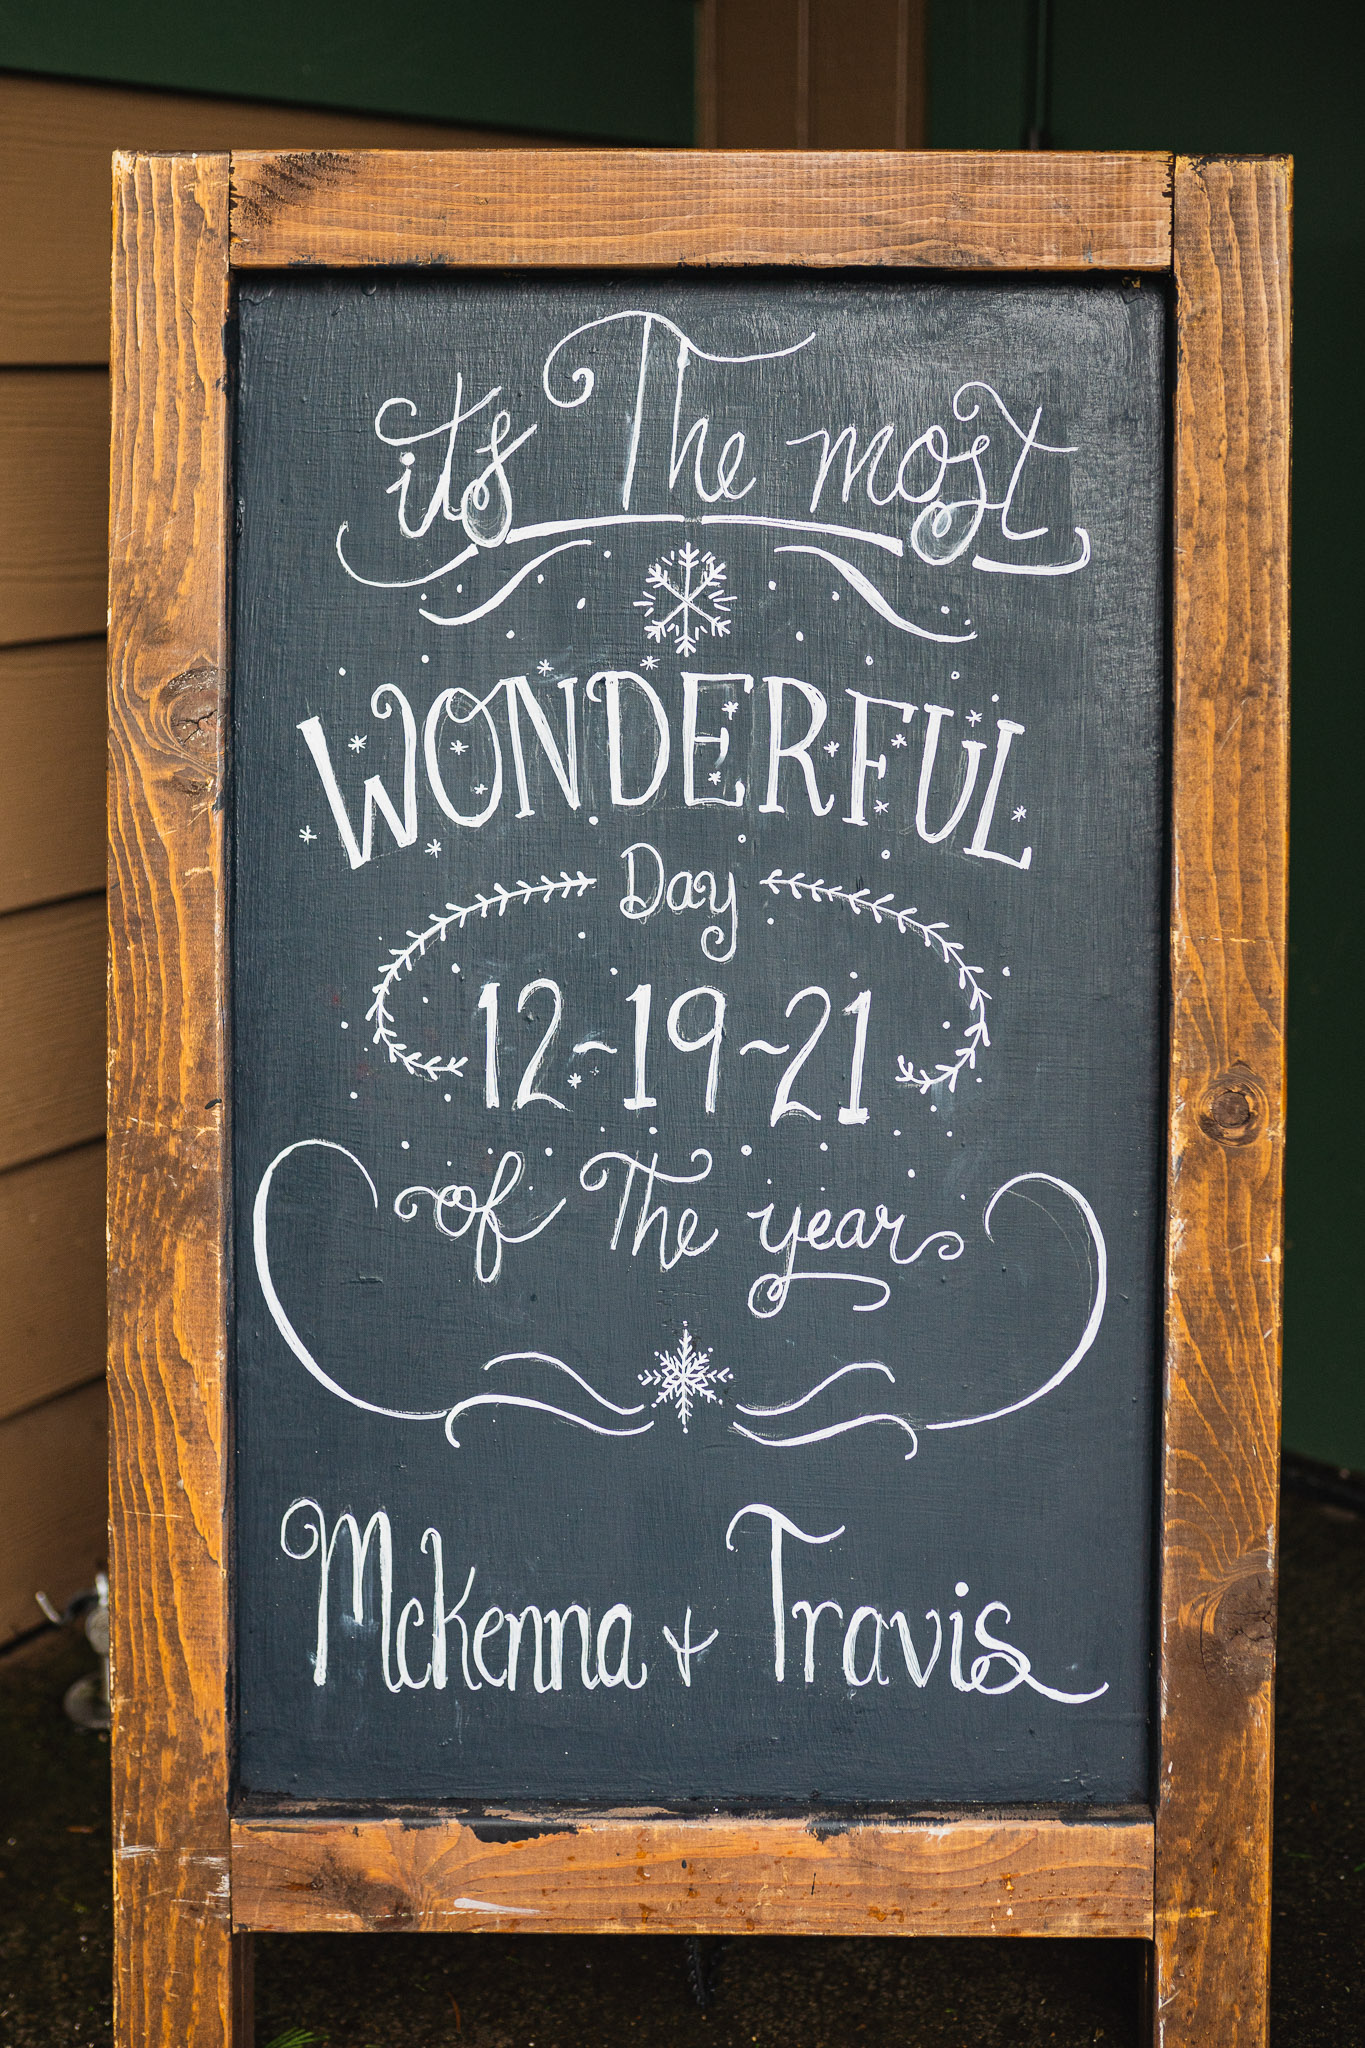 its The most
WONDERFUL
Day
12~19~21
of The year
McKenna + Travis